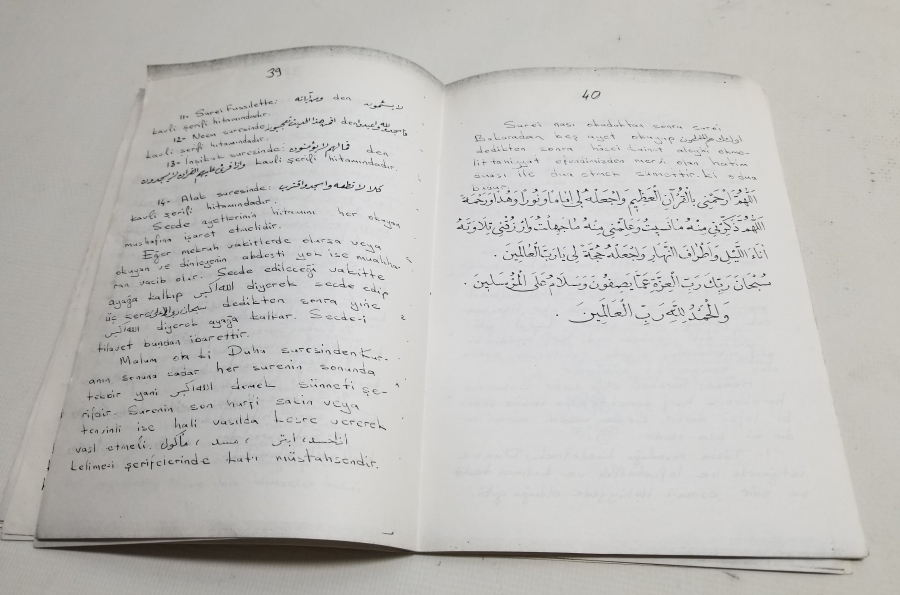 39
11- Surei Fussilette: den لا يسئمون
kavli şerifi hitamındadır.
12- Necm suresinde: den
kavli şerifi hitamındadır.
13- İnşikak suresinde: فما لهم لا يؤمنون den
واذا قرئ عليهم القرآن لا يسجدون kavli şerifi hitamındadır.
14- Alak suresinde: كلا لا تطعه واسجد واقترب
kavli şerifi hitamındadır.
Secde ayetlerinin hitamını her okuyan
mushafına işaret etmelidir.
Eğer mekruh vakitlerde olursa veya
okuyan ve dinleyenin abdesti yok ise
vacib olur. Secde edileceği vakitte
ayağa kalkıp الله اكبر diyerek secde edip
üç sefer dedikten sonra yine
الله اكبر diyerek ayağa kalkar. Secde-i
tilavet bundan ibarettir.
Malum ola ki Duha suresinden Kur-
anın sonuna kadar her surenin sonunda
tekbir yani الله اكبر demek sünneti şe-
rifdir. Surenin son harfi sakin veya
tenvinli ise hali vasılda kesre vererek
vasl etmeli. مأكول ، مسد ، ابتر
kelime-i şerifelerinde katı müstahsendir.
40
Surei nası okuduktan sonra surei
Bakaradan beş ayet okuyup اولئك هم المفلحون
dedikten sonra
efendimizden mervi olan hatim
duası ile dua etmek sünnettir. ki odua
budur
اللهم ارحمني بالقرآن العظيم واجعله لي اماما ونورا وهدا ورحمة
اللهم ذكرني منه ما نسيت وعلمني منه ما جهلت وارزقني تلاوته
اناء الليل واطراف النهار واجعله حجة لي يا رب العالمين .
سبحان ربك رب العزة عما يصفون وسلام على المرسلين .
والحمد لله رب العالمين .